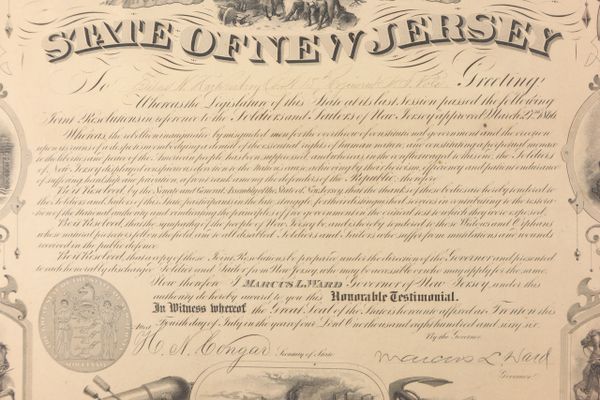 STATE OF NEW JERSEY
To Regiment N.J. Vols. Greeting:
Whereas the Legislature of this State at its last session passed the following
Joint Resolutions in reference to the Soldiers and Sailors of New Jersey approved March 27th 1866
Whereas, the rebellion inaugurated by misguided men for the overthrow of constitutional government and the erection
upon its ruins of a despotism embodying a denial of the essential rights of human nature, and constituting a perpetual menace
to the liberties and peace of the American people has been suppressed; and whereas in the conflict waged to this end, the Soldiers
of New Jersey displayed conspicuous devotion to the National cause, achieving by their heroism, efficiency and patient endurance
of suffering and hardship an honorable place among the defenders of the Republic, therefore
Be it Resolved, by the Senate and General Assembly of the State of New Jersey, that the thanks of these bodies are hereby tendered to
the Soldiers and Sailors of this State, participants in the late struggle, for their distinguished services in contributing to the restora-
tion of the National authority and vindicating the principles of free government in the crucial test to which they were exposed.
Be it Resolved, that the sympathy of the people of New Jersey be, and is hereby tendered to those Widows and Orphans
whose natural protectors fell in the field, and to all disabled Soldiers and Sailors who suffer from mutilations and wounds
received in the public defence.
Be it Resolved, that a copy of these Joint Resolutions be prepared under the direction of the Governor and presented
to each honorably discharged Soldier and Sailor from New Jersey, who may be accessible or who may apply for the same.
Now therefore I MARCUS L. WARD Governor of New Jersey under this
authority do hereby award to you this Honorable Testimonial.
In Witness whereof the Great Seal of the State is hereunto affixed at Trenton this
Fourth day of July in the year of our Lord One thousand eight hundred and sixty six.
Attest By the Governor
H. N. Congar Secretary of State Marcus L. Ward
Governor